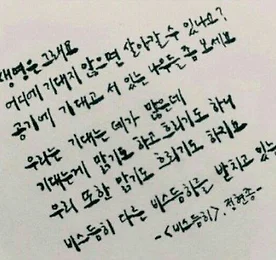 생명은 그래요
어디에 기대지 않으면 살아갈 수 있나요?
공기에 기대고 서 있는 나무들 좀 보세요
우리는 기대는 데가 많은데
기대는게 맑기도 하고 흐리기도 하니
우리 또한 맑기도 흐리기도 하지요
비스듬히 다른 비스듬히를 받치고 있는
-<비스듬히>. 정현종-